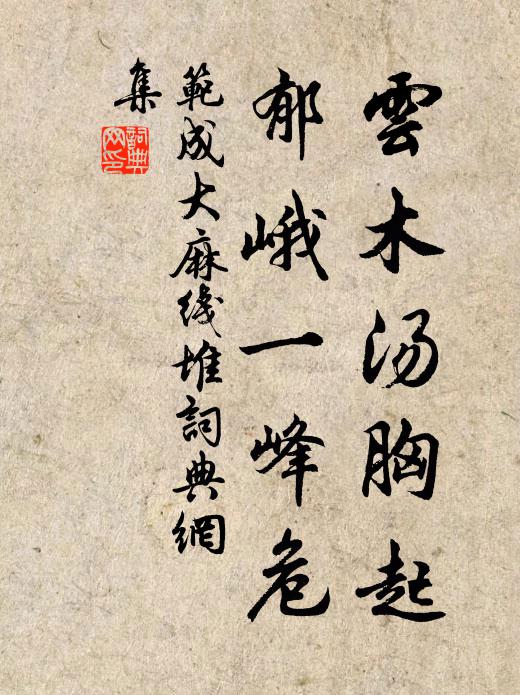 雲木汤胸起
郁峨一峰危
範成大麻线堆詞典網
集
詞典网印